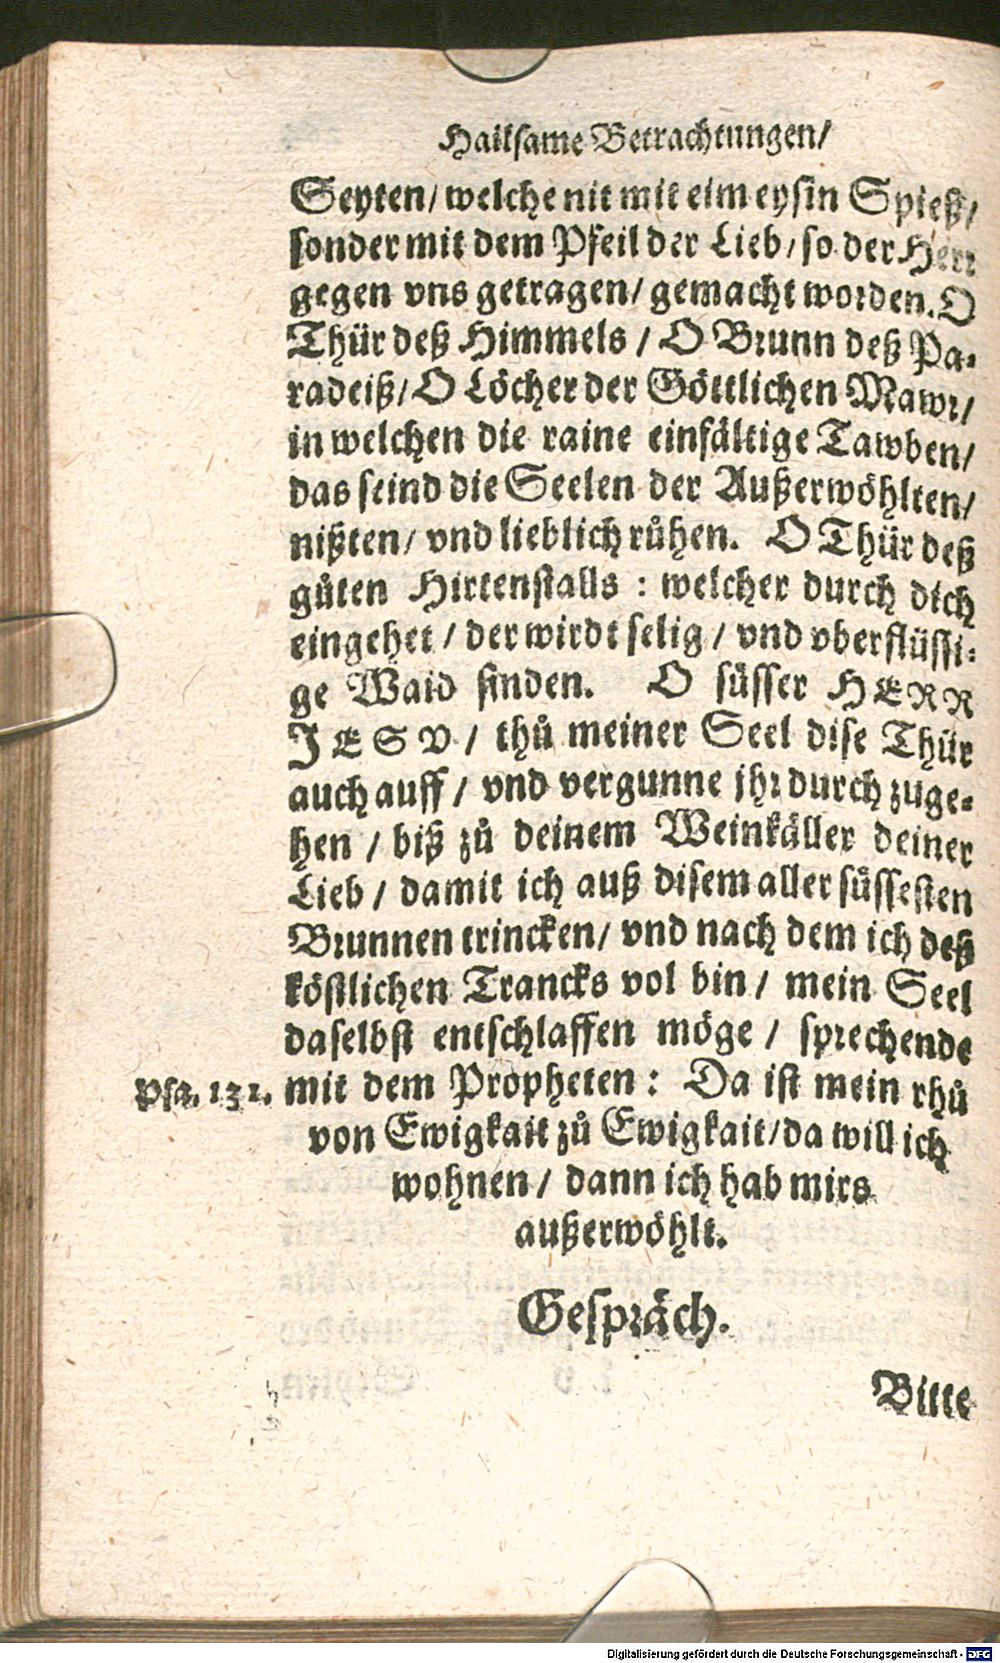 Hailsame Betrachtungen/
Seyten/ welche nit mit eim eysin Spieß/
sonder mit dem Pfeil der Lieb/ so der Herr
gegen vns getragen/ gemacht worden. O
Thür deß Himmels / O Brunn deß Pa-
radeiß/ O Löcher der Göttlichen Mawr/
in welchen die raine einfältige Tawben/
das seind die Seelen der Außerwöhlten/
nißten/ vnd lieblich růhen. O Thür deß
gůten Hirtenstalls : welcher durch dich
eingehet / der wirdt selig / vnd vberflüssi-
ge Waid finden. O süsser HERR
JESV / thů meiner Seel dise Thür
auch auff / vnd vergunne jhr durch zuge-
hen / biß zů deinem Weinkäller deiner
Lieb / damit ich auß disem aller süssesten
Brunnen trincken/ vnd nach dem ich deß
köstlichen Trancks vol bin / mein Seel
daselbst entschlaffen möge / sprechende
Psa. 131. mit dem Propheten : Da ist mein rhů
von Ewigkait zů Ewigkait/ da will ich
wohnen / dann ich hab mirs
außerwöhlt.
Gespräch.
Bitte
Digitalisierung gefördert durch die Deutsche Forschungsgemeinschaft - DFG